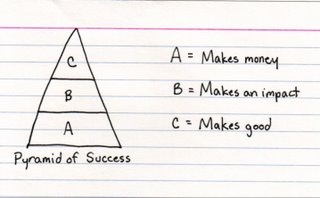 C
B
A
Pyramid of Success
A = Makes money
B = Makes an impact
C = Makes good